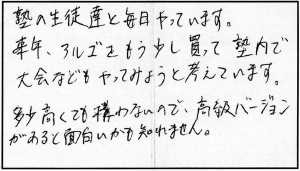 塾の生徒達と毎日やっています。
来年、アルゴをもう少し買って塾内で
大会などもやってみようと考えています。
多少高くても構わないので、高級バージョン
があると面白いかも知れません。